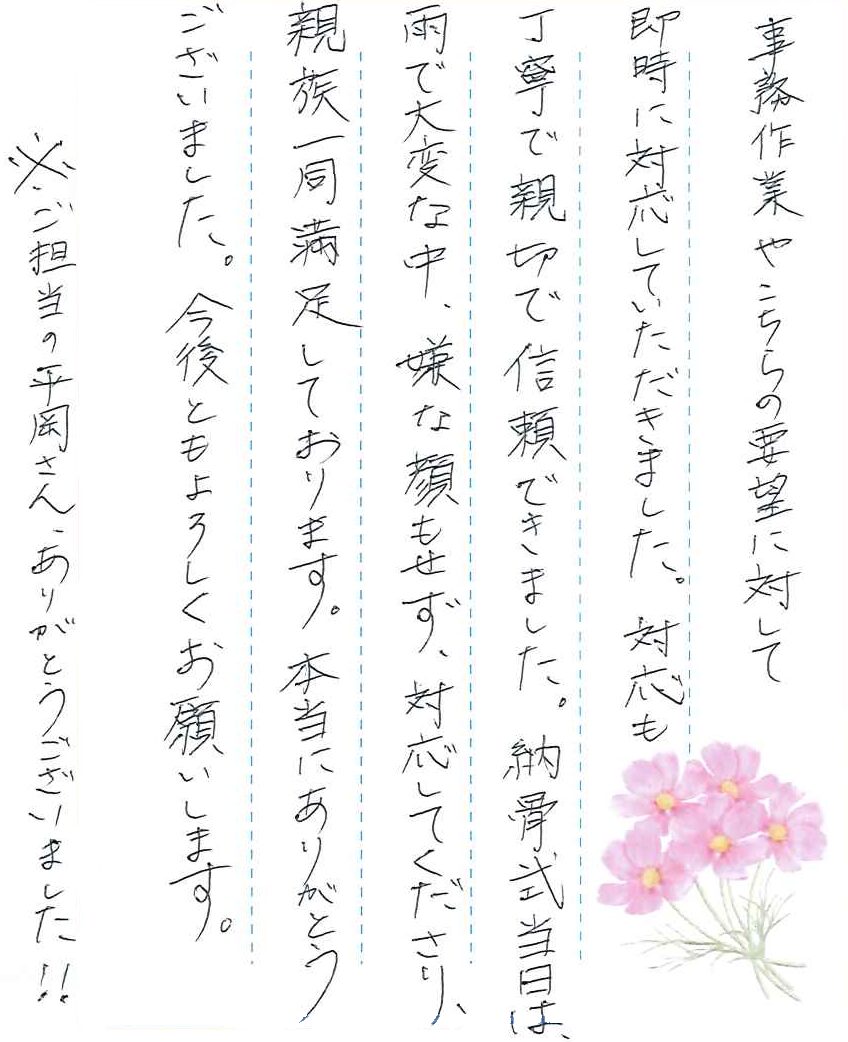 事務作業やこちらの要望に対して
即時に対応していただきました。対応も
丁寧で親切で信頼できました。納骨式当日は、
雨で大変な中、嫌な顔もせず、対応してくださり、
親族一同満足しております。本当にありがとう
ございました。今後ともよろしくお願いします。
※ご担当の平岡さん、ありがとうございました!!